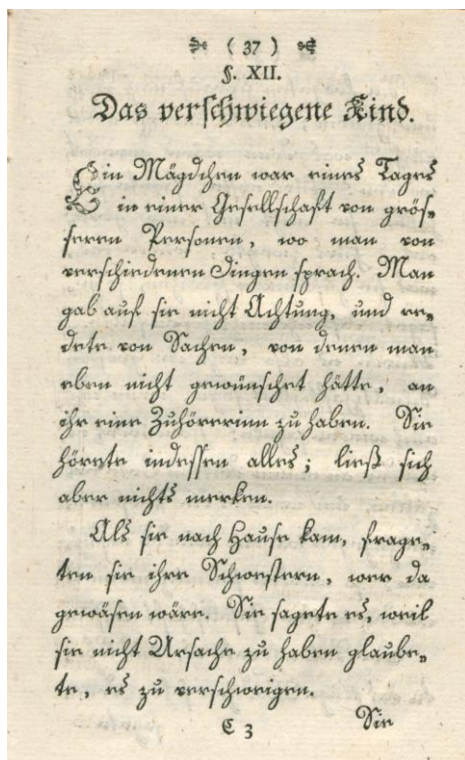 ( 37 )
§. XII.
Das verschwiegene Kind.
Ein Mägdchen war eines Tages
in einer Gesellschaft von grös-
seren Personen, wo man von
verschiedenen Dingen sprach. Man
gab auf sie nicht Achtung, und re-
dete von Sachen, von denen man
eben nicht gewünschet hätte, an
ihr eine Zuhörerinn zu haben. Sie
hörete indessen alles; ließ sich
aber nichts merken.
Als sie nach Hause kam, frage-
ten sie ihre Schwestern, wer da
gewäsen wäre. Sie sagete es, weil
sie nicht Ursache zu haben glaube-
te, es zu verschweigen.
C 3
Sie